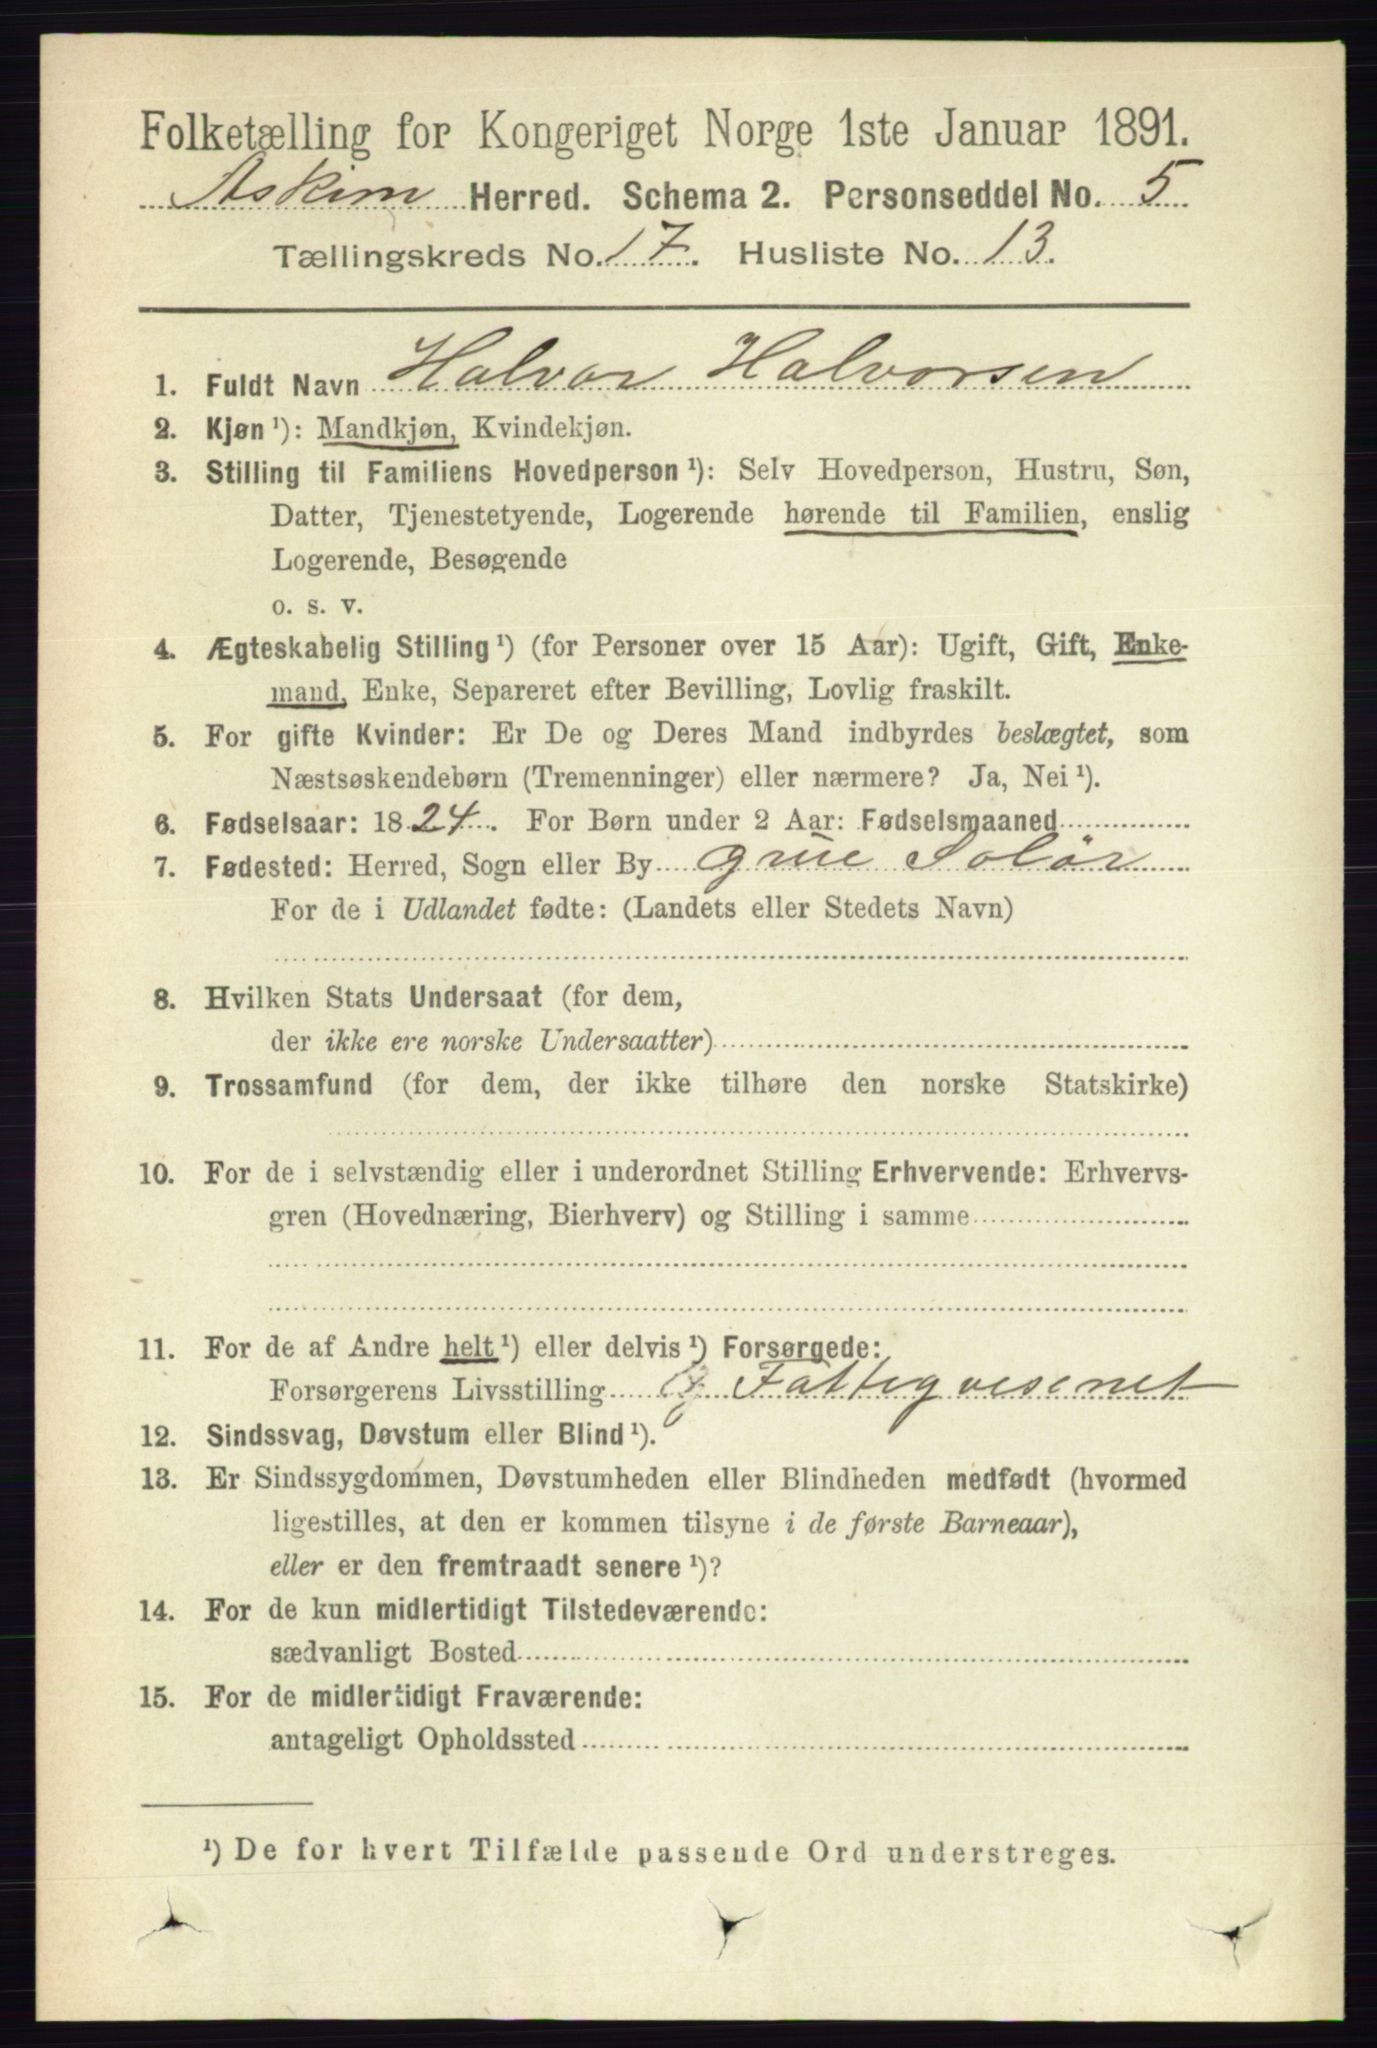 Folketælling for Kongeriget Norge 1ste Januar 1891.
Askim Herred. Schema 2. Personseddel No. 5
Tællingskreds No. 17. Husliste No. 13.
1. Fuldt Navn Halvor Halvorsen
2. Kjøn¹): Mandkjøn, Kvindekjøn.
3. Stilling til Familiens Hovedperson¹): Selv Hovedperson, Hustru, Søn,
Datter, Tjenestetyende, Logerende hørende til Familien, enslig
Logerende, Besøgende
o. s. v.
4. Ægteskabelig Stilling¹) (for Personer over 15 Aar): Ugift, Gift, Enke-
mand, Enke, Separeret efter Bevilling, Lovlig fraskilt.
5. For gifte Kvinder: Er De og Deres Mand indbyrdes beslægtet, som
Næstsøskendebørn (Tremenninger) eller nærmere? Ja, Nei¹).
6. Fødselsaar: 1824. For Børn under 2 Aar: Fødselsmaaned
7. Fødested: Herred, Sogn eller By Grue Solör
For de i Udlandet fødte: (Landets eller Stedets Navn)
8. Hvilken Stats Undersaat (for dem,
der ikke ere norske Undersaatter)
9. Trossamfund (for dem, der ikke tilhøre den norske Statskirke)
10. For de i selvstændig eller i underordnet Stilling Erhvervende: Erhvervs-
gren (Hovednæring, Bierhverv) og Stilling i samme
11. For de af Andre helt¹) eller delvis¹) Forsørgede:
Forsørgerens Livsstilling Fattigvesenet
12. Sindssvag, Døvstum eller Blind¹).
13. Er Sindssygdommen, Døvstumheden eller Blindheden medfødt (hvormed
ligestilles, at den er kommen tilsyne i de første Barneaar),
eller er den fremtraadt senere¹)?
14. For de kun midlertidigt Tilstedeværende:
sædvanligt Bosted
15. For de midlertidigt Fraværende:
antageligt Opholdssted
¹) De for hvert Tilfælde passende Ord understreges.